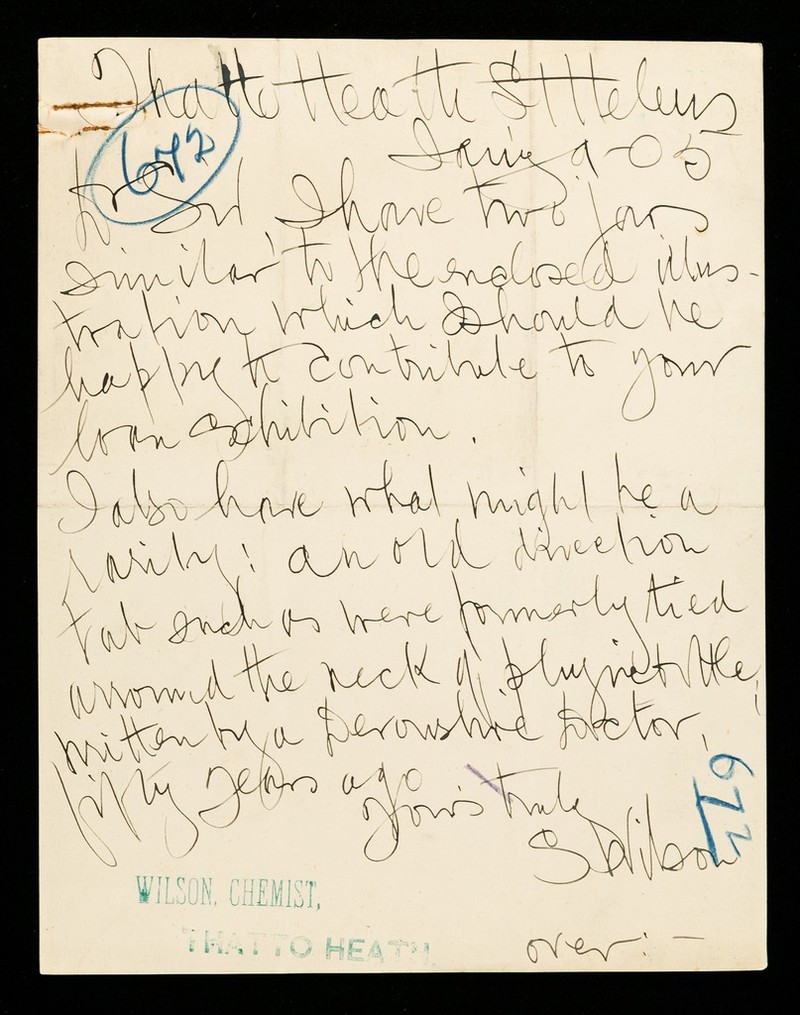 Thatto Heath St Helens
9-05
672
Dr Sir I have two jars
similar to the enclosed illus-
tration which I should be
happy to contribute to your
loan exhibition.
I also have what might be a
rarity: an old direction
tab such as were formerly tied
arround the neck of physic bottle,
written by a Devonshire Doctor,
fifty years ago
Yours truly
S Wilson
672
WILSON, CHEMIST,
THATTO HEATH.
over:-